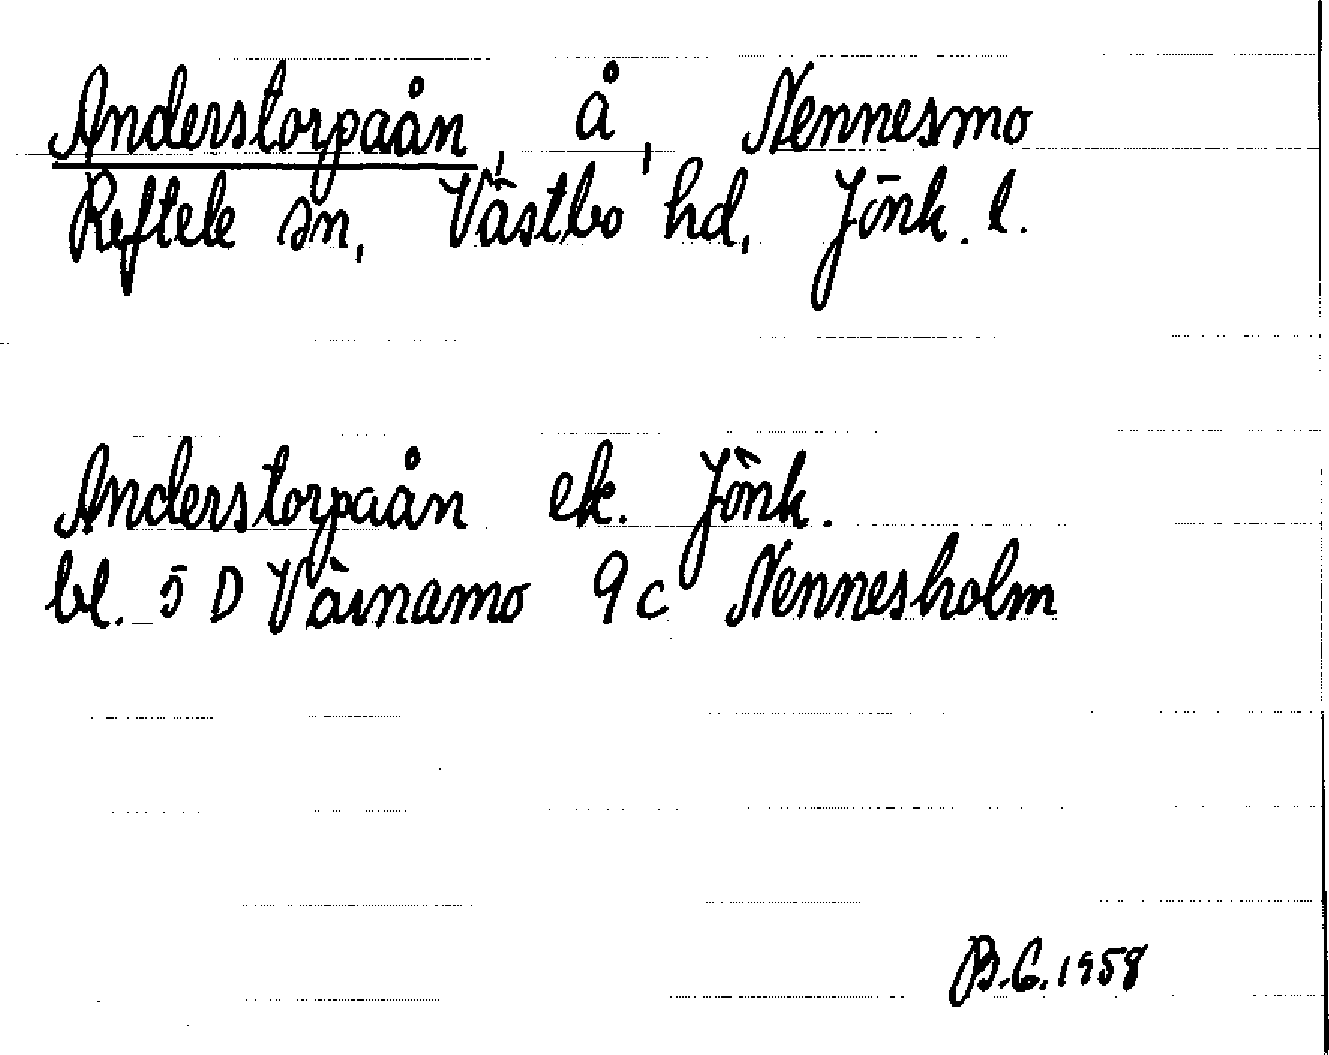 Anderstorpaån, å, Nennesmo
Reftele sn, Västbo hd, Jönk. l.
Anderstorpaån ek. Jönk.
bl. 5 D Värnamo 9c Nennesholm
B.G. 1958